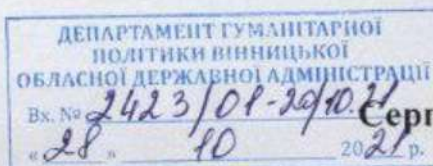 ДЕПАРТАМЕНТ ГУМАНІТАРНОЇ
ПОЛІТИКИ ВІННИЦЬКОЇ
ОБЛАСНОЇ ДЕРЖАВНОЇ АДМІНІСТРАЦІЇ
Вх. № 2423/01-20/10.21 Серг
«28» 10 2021 р.